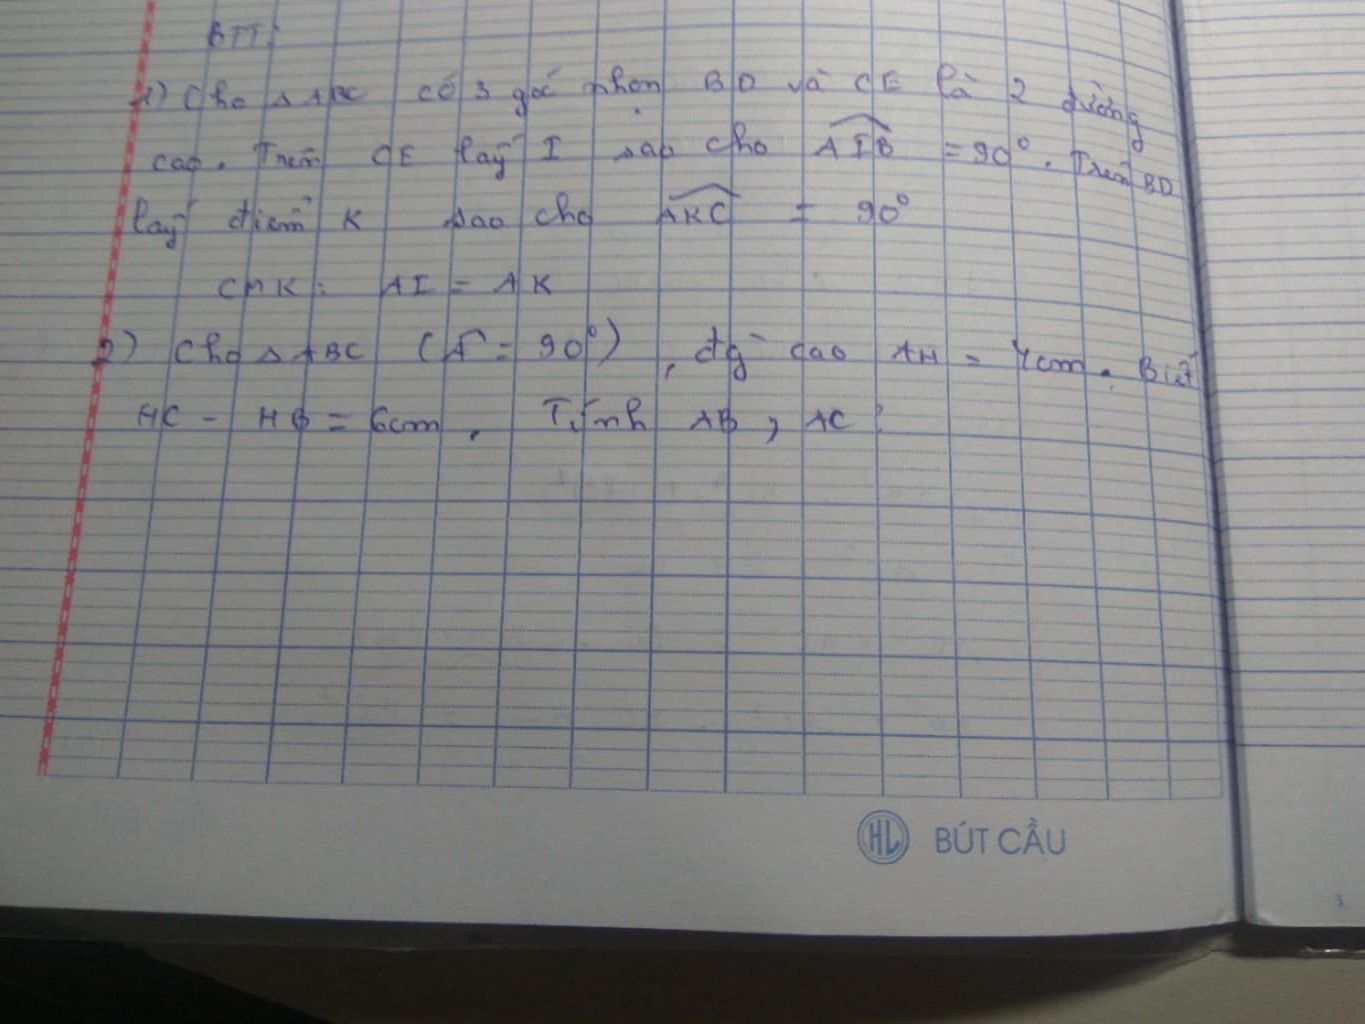 BTT:
1) Cho △ABC có 3 góc nhọn BD và CE là 2 đường
cao. Trên CE lấy I sao cho AIB = 90°. Trên BD
lấy điểm K sao cho AKC = 90°
CMR: AI = AK
2) Cho △ABC (A = 90°), đg cao AH = 4cm. Biết
HC - HB = 6cm. Tính AB, AC?
HL BÚT CẦU
3